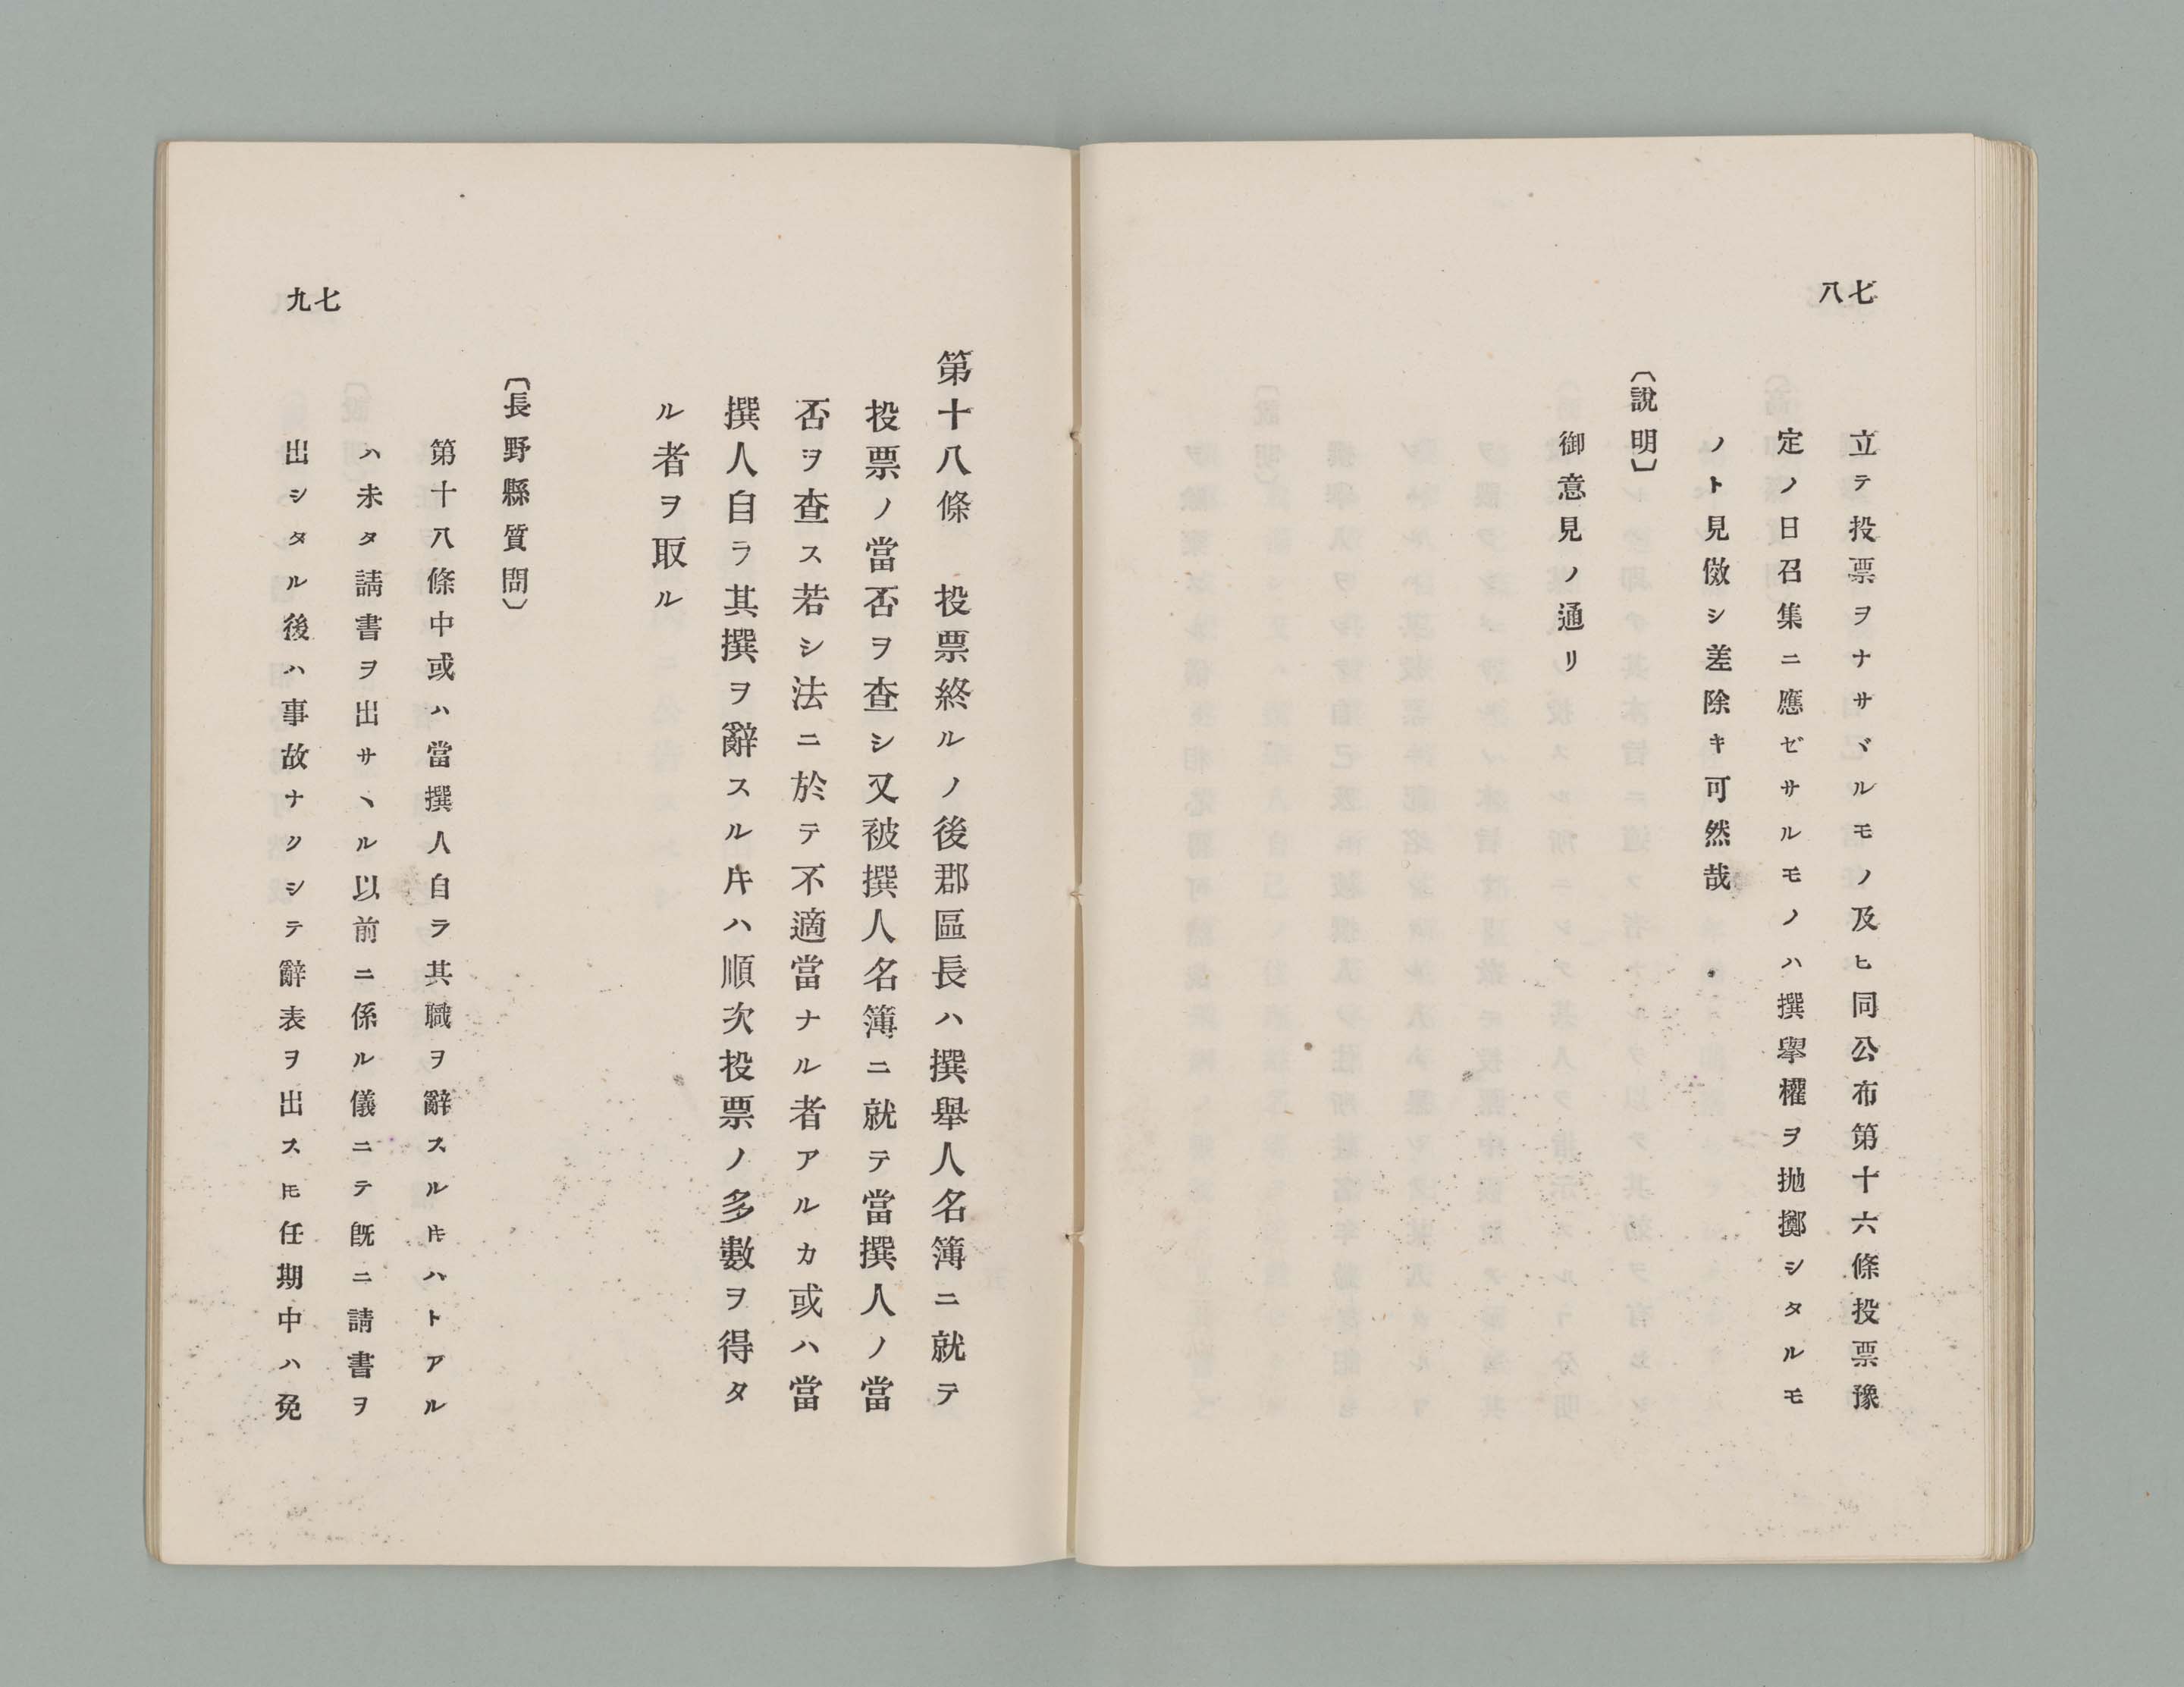 七八
立テ投票ヲナサヾルモノ及ヒ同公布第十六條投票豫
定ノ日召集ニ應ゼサルモノハ撰擧權ヲ抛擲シタルモ
ノト見傚シ差除キ可然哉
〔說明〕
御意見ノ通リ
七九
第十八條　投票終ルノ後郡區長ハ撰擧人名簿ニ就テ
投票ノ當否ヲ查シ又被撰人名簿ニ就テ當撰人ノ當
否ヲ查ス若シ法ニ於テ不適當ナル者アルカ或ハ當
撰人自ラ其撰ヲ辭スルキハ順次投票ノ多數ヲ得タ
ル者ヲ取ル
〔長野縣質問〕
第十八條中或ハ當撰人自ラ其職ヲ辭スルキハトアル
ハ未タ請書ヲ出サヽル以前ニ係ル儀ニテ旣ニ請書ヲ
出シタル後ハ事故ナクシテ辭表ヲ出スヿモ任期中ハ免